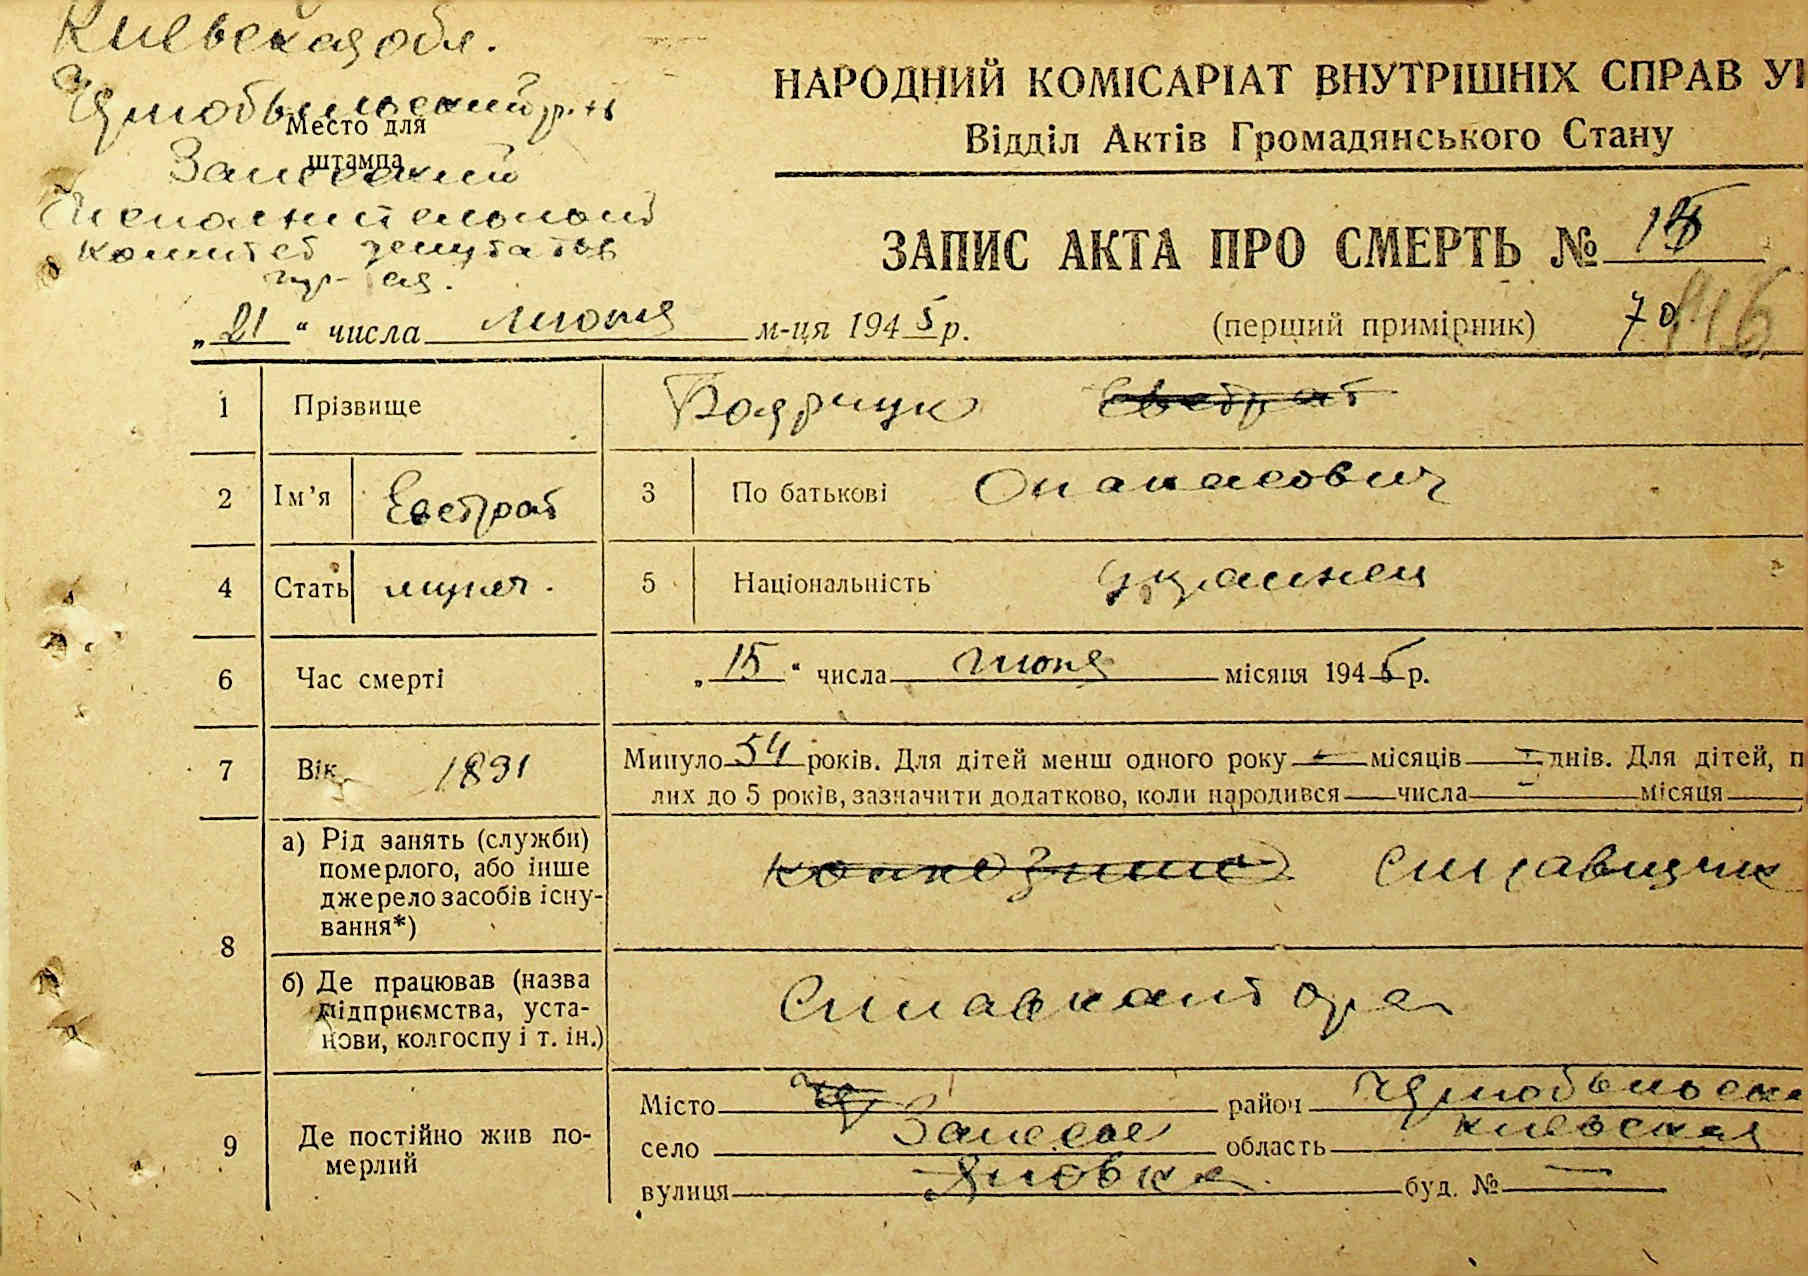 Киевская обл.
Чернобыльский р-н
Место для
штампа
Залесский
Исполнительный
комитет депутатов
тр-ся.
НАРОДНИЙ КОМІСАРІАТ ВНУТРІШНІХ СПРАВ УР
Відділ Актів Громадянського Стану
ЗАПИС АКТА ПРО СМЕРТЬ №
„21“ числа июня м-ця 1945 р.
(перший примірник)
146
1 Прізвище Боярчук Евстрат
2 Ім’я Евстрат 3 По батькові Опанасович
4 Стать мужч. 5 Національність Украинец
6 Час смерті „15“ числа июня місяця 1945 р.
7 Вік 1891 Минуло 54 років. Для дітей менш одного року — місяців — днів. Для дітей, п
лих до 5 років, зазначити додатково, коли народився — числа — місяця
8 а) Рід занять (служби)
померлого, або інше
джерело засобів існу-
вання*)
колхозник Сплавщик
б) Де працював (назва
підприємства, уста-
нови, колгоспу і т. ін.)
Сплавконтора
9 Де постійно жив по-
мерлий
Місто район Чернобыльск
село Залесье область Киевская
вулиця Яновка буд. № —